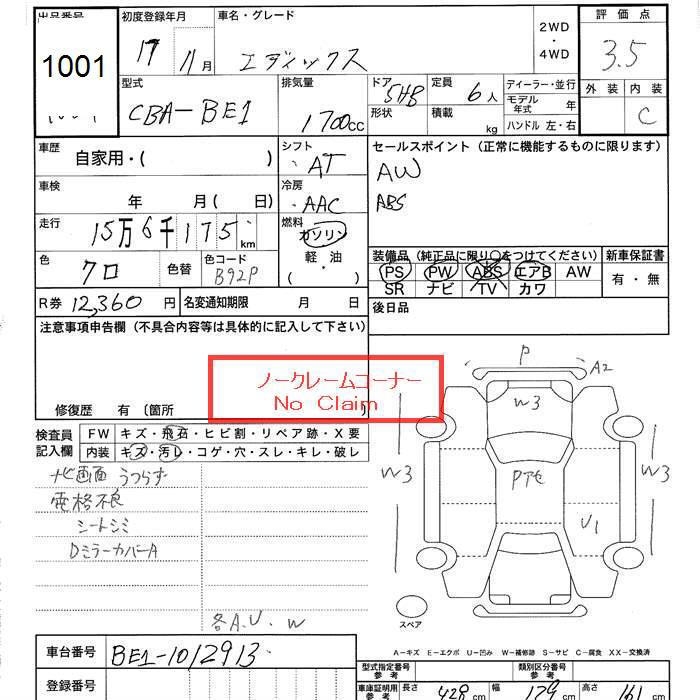 出品番号
1001
初度登録年月
17 年 11 月
車名・グレード
エディックス
2WD
・
4WD
評価点
3.5
外装 内装
C
型式
CBA-BE1
排気量
1700cc
ドア
形状
5HB
定員
6人
積載
kg
ディーラー・並行
モデル
年式
年
ハンドル 左・右
車歴
自家用・( )
シフト
AT
セールスポイント(正常に機能するものに限ります)
AW
ABS
車検
年 月( 日)
冷房
AAC
走行
15万6千175km
燃料
ガソリン
軽・油
( )
色
クロ
色替
色コード
B92P
装備品(純正品に限り○をつけてください)
PS PW ABS エアB AW
SR ナビ TV カワ
新車保証書
有・無
R券 12,360 円
名変通知期限 月 日
後日品
注意事項申告欄(不具合内容等は具体的に記入して下さい)
ノークレームコーナー
No Claim
修復歴 有〔箇所
検査員
記入欄
FW キズ・飛石・ヒビ割・リペア跡・X要
内装 キズ・汚レ・コゲ・穴・スレ・キレ・破レ
ナビ画面 うつらず
電格不良
シートシミ
DミラーカバーA
各A.U.W
P
A2
W3
W3
W3
Pアセ
U1
スペア
A−キズ E−エクボ U−凹み W−補修跡 S−サビ C−腐食 XX−交換済
車台番号
BE1-1012913
登録番号
型式指定番号
参考
類別区分番号
参考
車庫証明用
参考
長さ 428 cm
幅 179 cm
高さ 161 cm